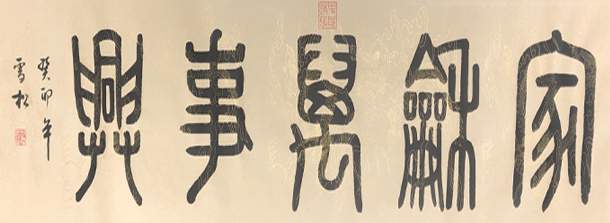 家龢萬事興
癸卯年
雪松